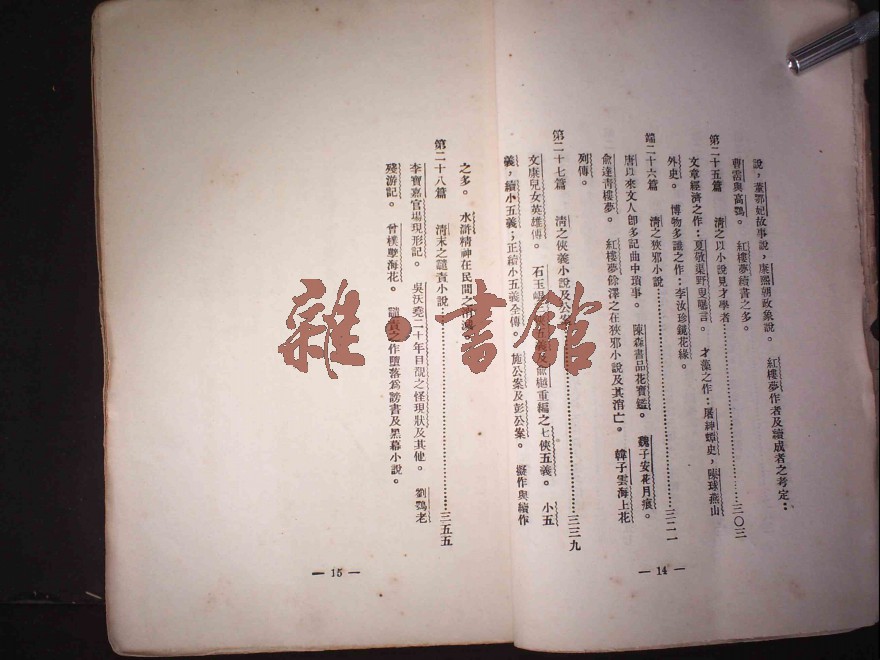 說，董鄂妃故事說，康熙朝政象說。　紅樓夢作者及續成者之考定：
曹霑與高鶚。　紅樓夢續書之多。
第二十五篇　清之以小說見才學者……三〇三
文章經濟之作：夏敬渠野叟曝言。　才藻之作：屠紳蟫史，陳球燕山
外史。　博物多識之作：李汝珍鏡花緣。
第二十六篇　清之狹邪小說……三二一
唐以來文人卽多記曲中瑣事。　陳森書品花寶鑑。　魏子安花月痕。
俞達青樓夢。　紅樓夢餘澤之在狹邪小說及其消亡。　韓子雲海上花
列傳。
第二十七篇　清之俠義小說及公案……三三九
文康兒女英雄傳。　石玉崐三俠五義及俞樾重編之七俠五義。　小五
義，續小五義；正續小五義全傳。　施公案及彭公案。　擬作與續作
— 14 —
之多。　水滸精神在民間之消滅。
第二十八篇　清末之譴責小說……三五五
李寶嘉官場現形記。　吳沃堯二十年目覩之怪現狀及其他。　劉鶚老
殘游記。　曾樸孽海花。　譴責之作墮落爲謗書及黑幕小說。
— 15 —
雜書館